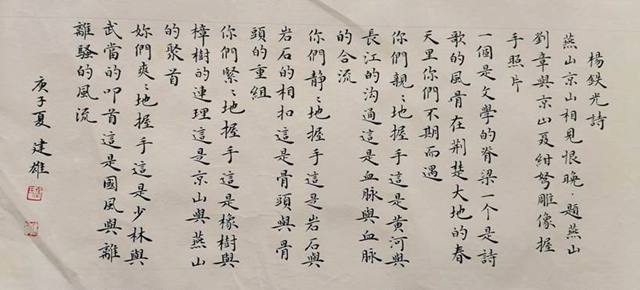 楊鉄光詩
燕山京山相見恨晚·題燕山
劉章與京山聂紺弩雕像握
手照片
一個是文學的脊梁一个是詩
歌的風骨在荆楚大地的春
天里你們不期而遇
你們親〻地握手這是黄河與
長江的沟通這是血脉與血脉
的合流
你們静〻地握手這是岩石與
岩石的相扣這是骨頭與骨
頭的重組
你們緊〻地握手這是橡樹與
樟樹的連理這是京山與燕山
的聚首
妳們爽〻地握手這是少林與
武當的叩首這是國風與離
離騷的風流
庚子夏 建雄